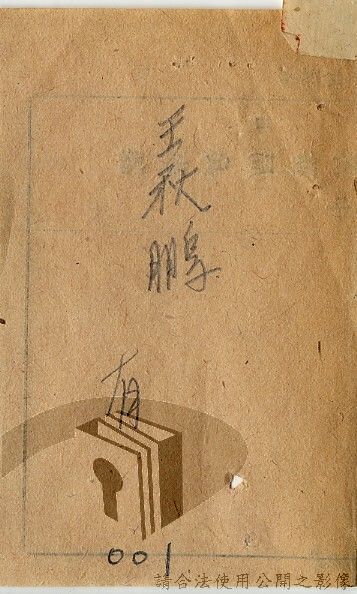 王秋鵬
有
001
請合法使用公開之影像